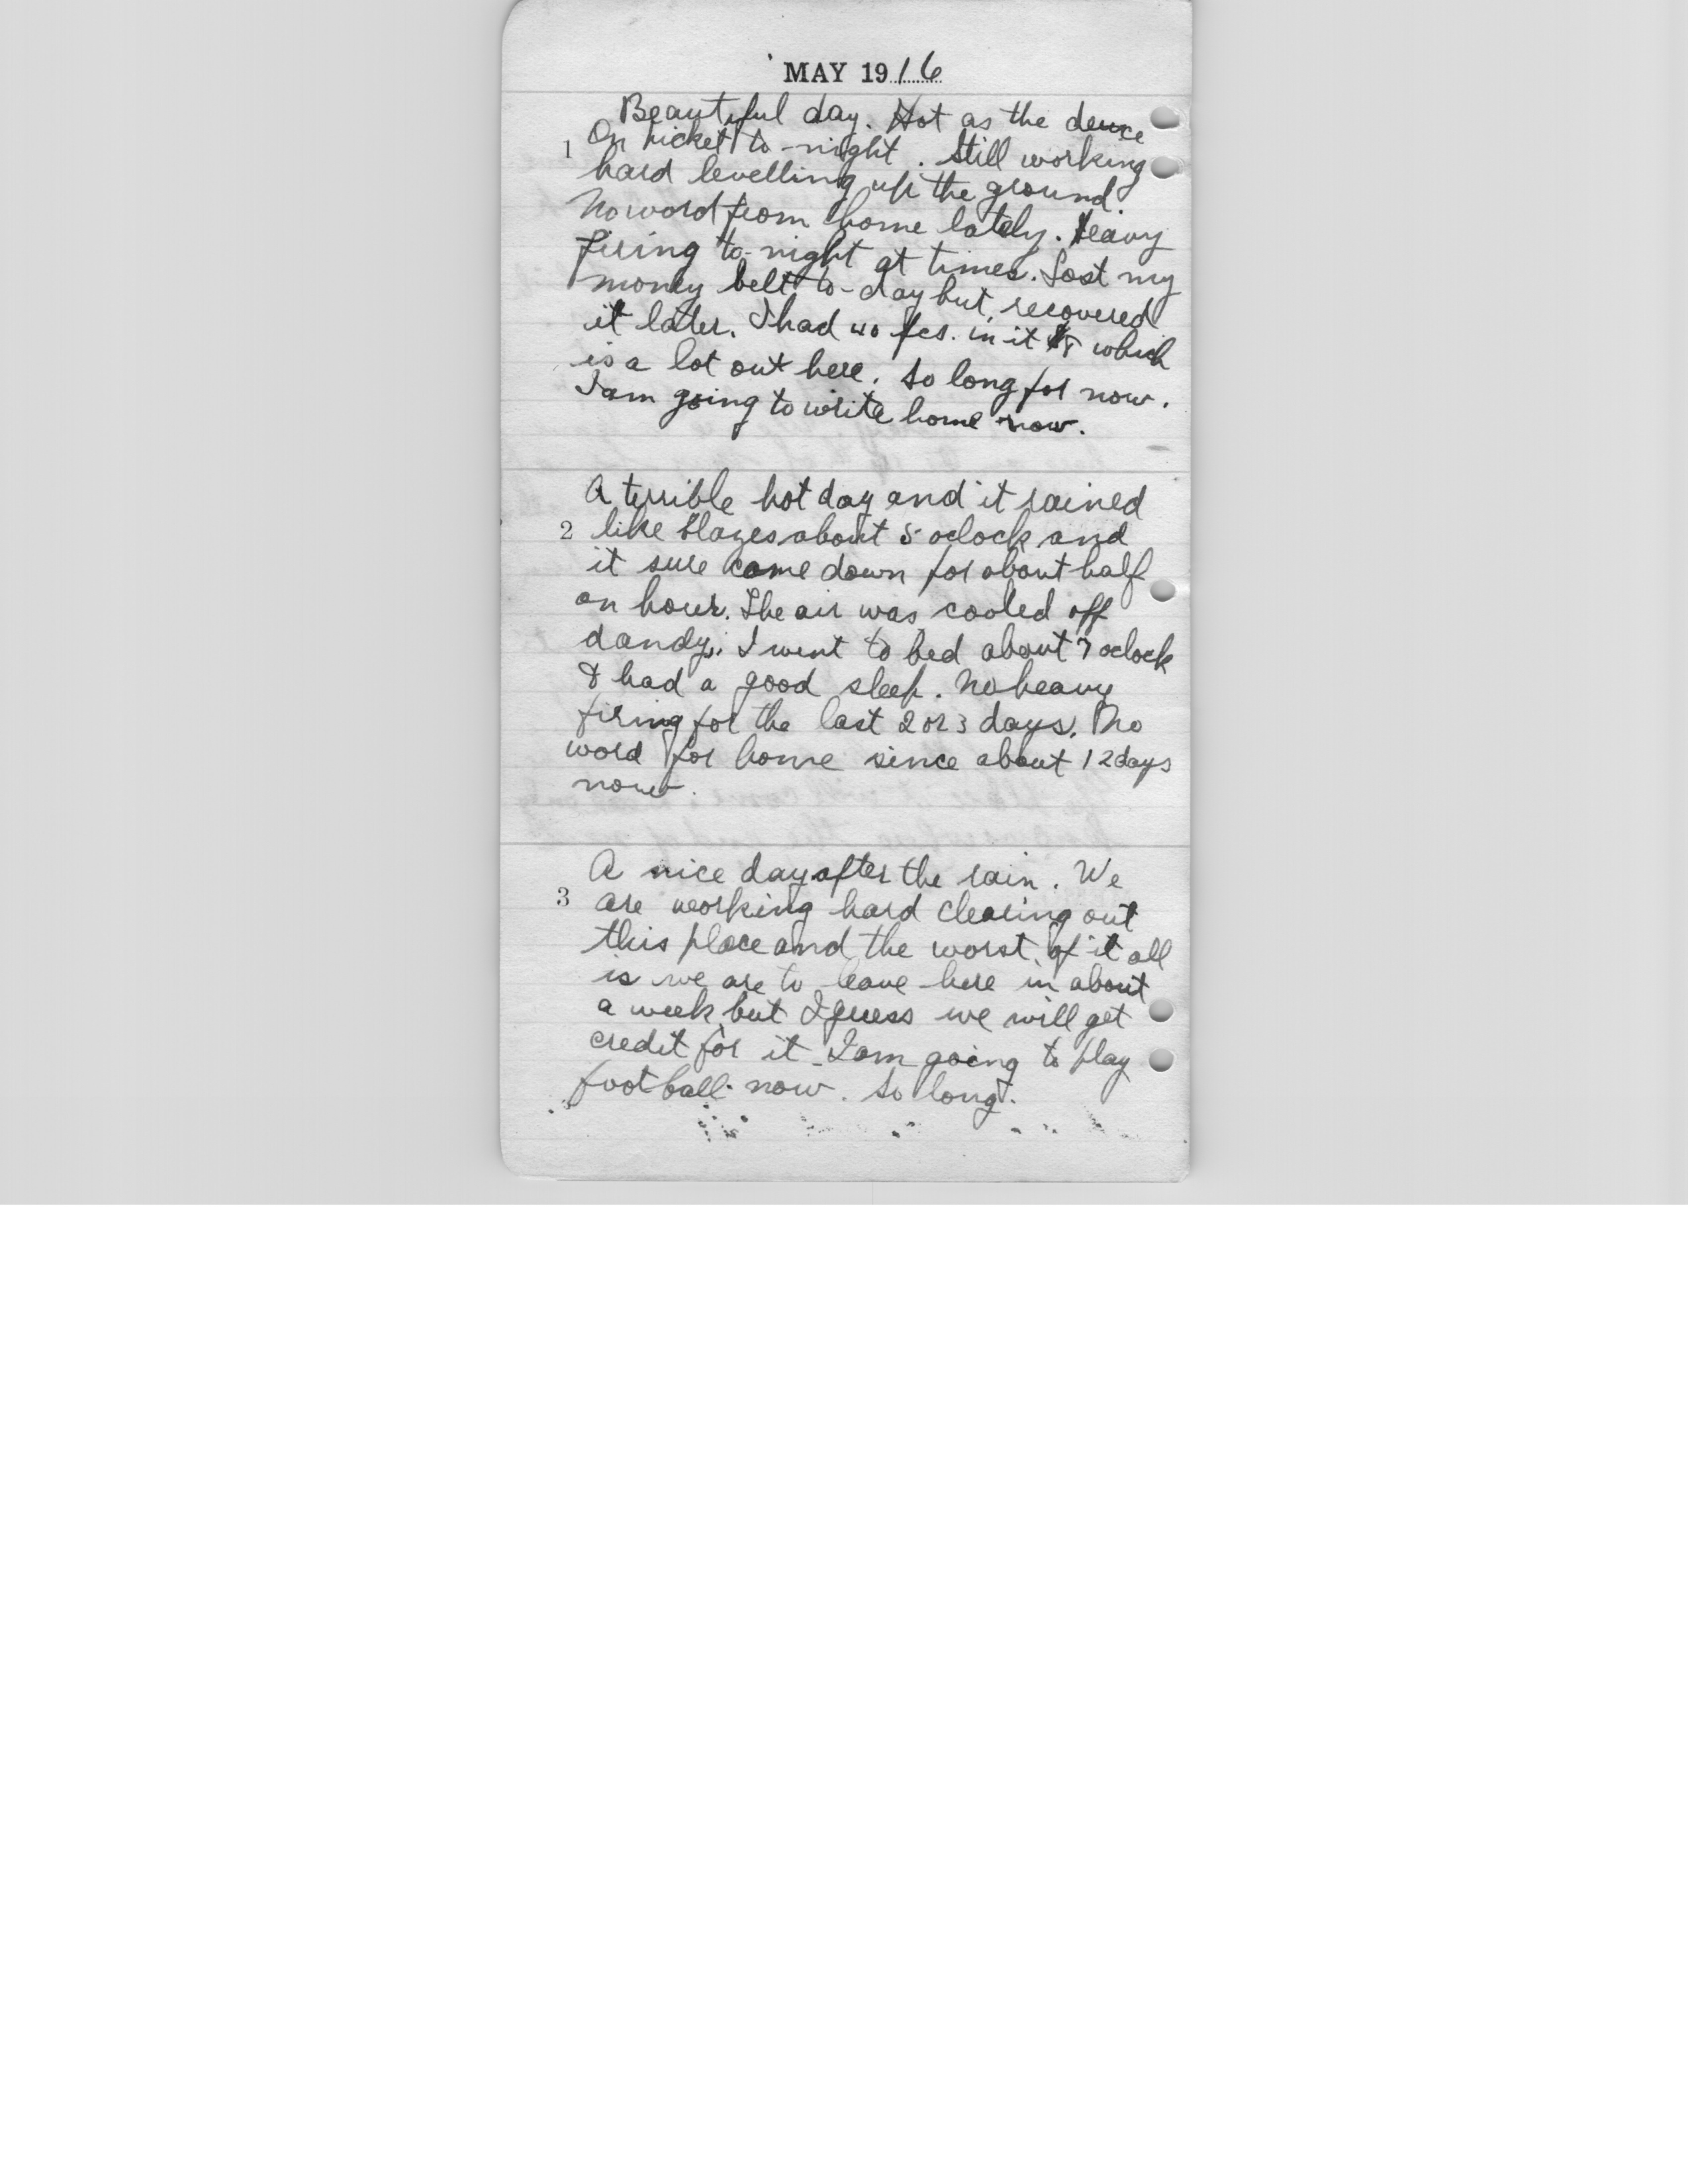 MAY 1916
Beautiful day. Hot as the deuce
1 On picket to-night. Still working
hard levelling up the ground.
No word from home lately. Heavy
firing to-night at times. Lost my
money belt to-day but recovered
it later. I had 40 fcs. in it which
is a lot out here. So long for now.
I am going to write home now.
A terrible hot day and it rained
2 like blazes about 5 oclock and
it sure came down for about half
an hour. The air was cooled off
dandy. I went to bed about 7 oclock
& had a good sleep. No heavy
firing for the last 2 or 3 days. No
word for home since about 12 days
now.
A nice day after the rain. We
3 are working hard clearing out
this place and the worst of it all
is we are to leave here in about
a week but I guess we will get
credit for it. I am going to play
football now. So long.